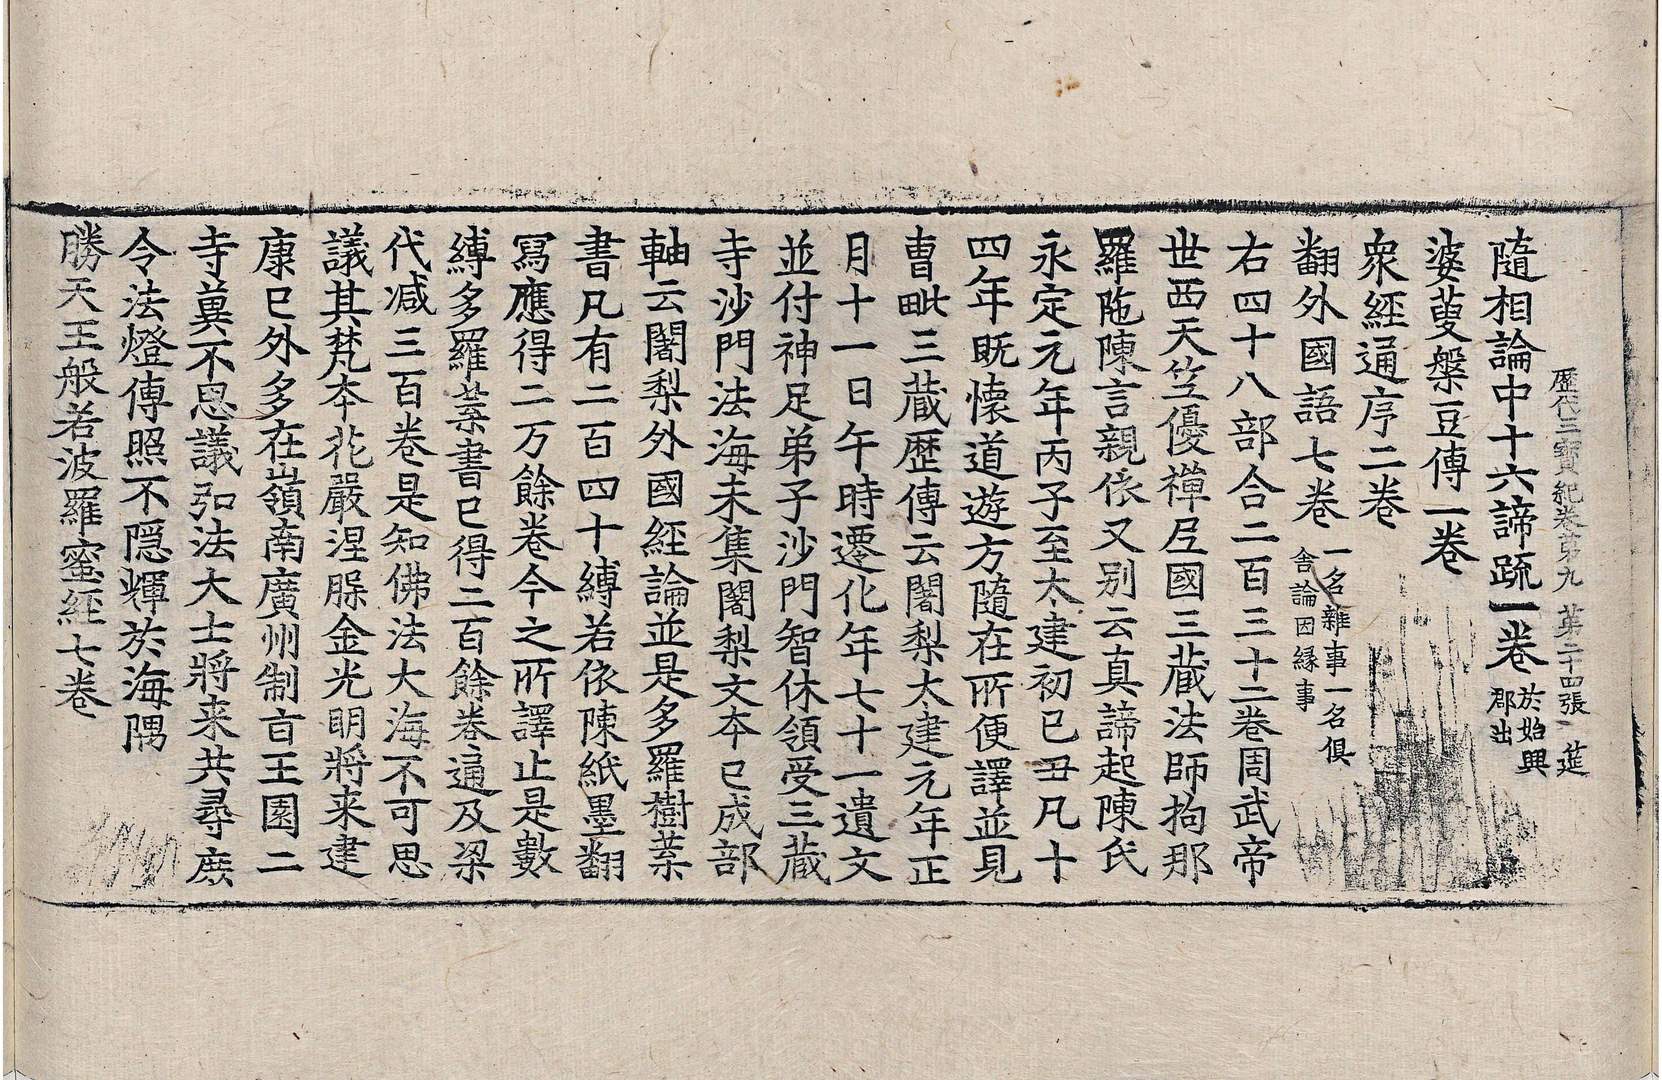 歷代三寶紀卷第九 第二十四張 莚
隨相論中十六諦疏一卷 於始興郡出
婆藪槃豆傳一卷
衆經通序二卷
翻外國語七卷 一名雜事一名俱舍論因縁事
右四十八部合二百三十二卷周武帝
世西天竺優禪尼國三藏法師拘那
羅陁陳言親依又别云真諦起陳氏
永定元年丙子至太建初已丑凡十
四年既懷道遊方隨在所便譯並見
曹毗三藏歷傳云闍梨太建元年正
月十一日午時遷化年七十一遺文
並付神足弟子沙門智休領受三藏
寺沙門法海未集闍梨文本已成部
軸云闍梨外國經論並是多羅樹葉
書凡有二百四十縛若依陳紙墨翻
寫應得二万餘卷今之所譯止是數
縛多羅葉書已得二百餘卷通及梁
代减三百卷是知佛法大海不可思
議其梵本花嚴涅槃金光明將来建
康已外多在嶺南廣州制旨王園二
寺冀不思議弘法大士將来共尋庶
令法燈傳照不隱輝於海隅
勝天王般若波羅蜜經七卷